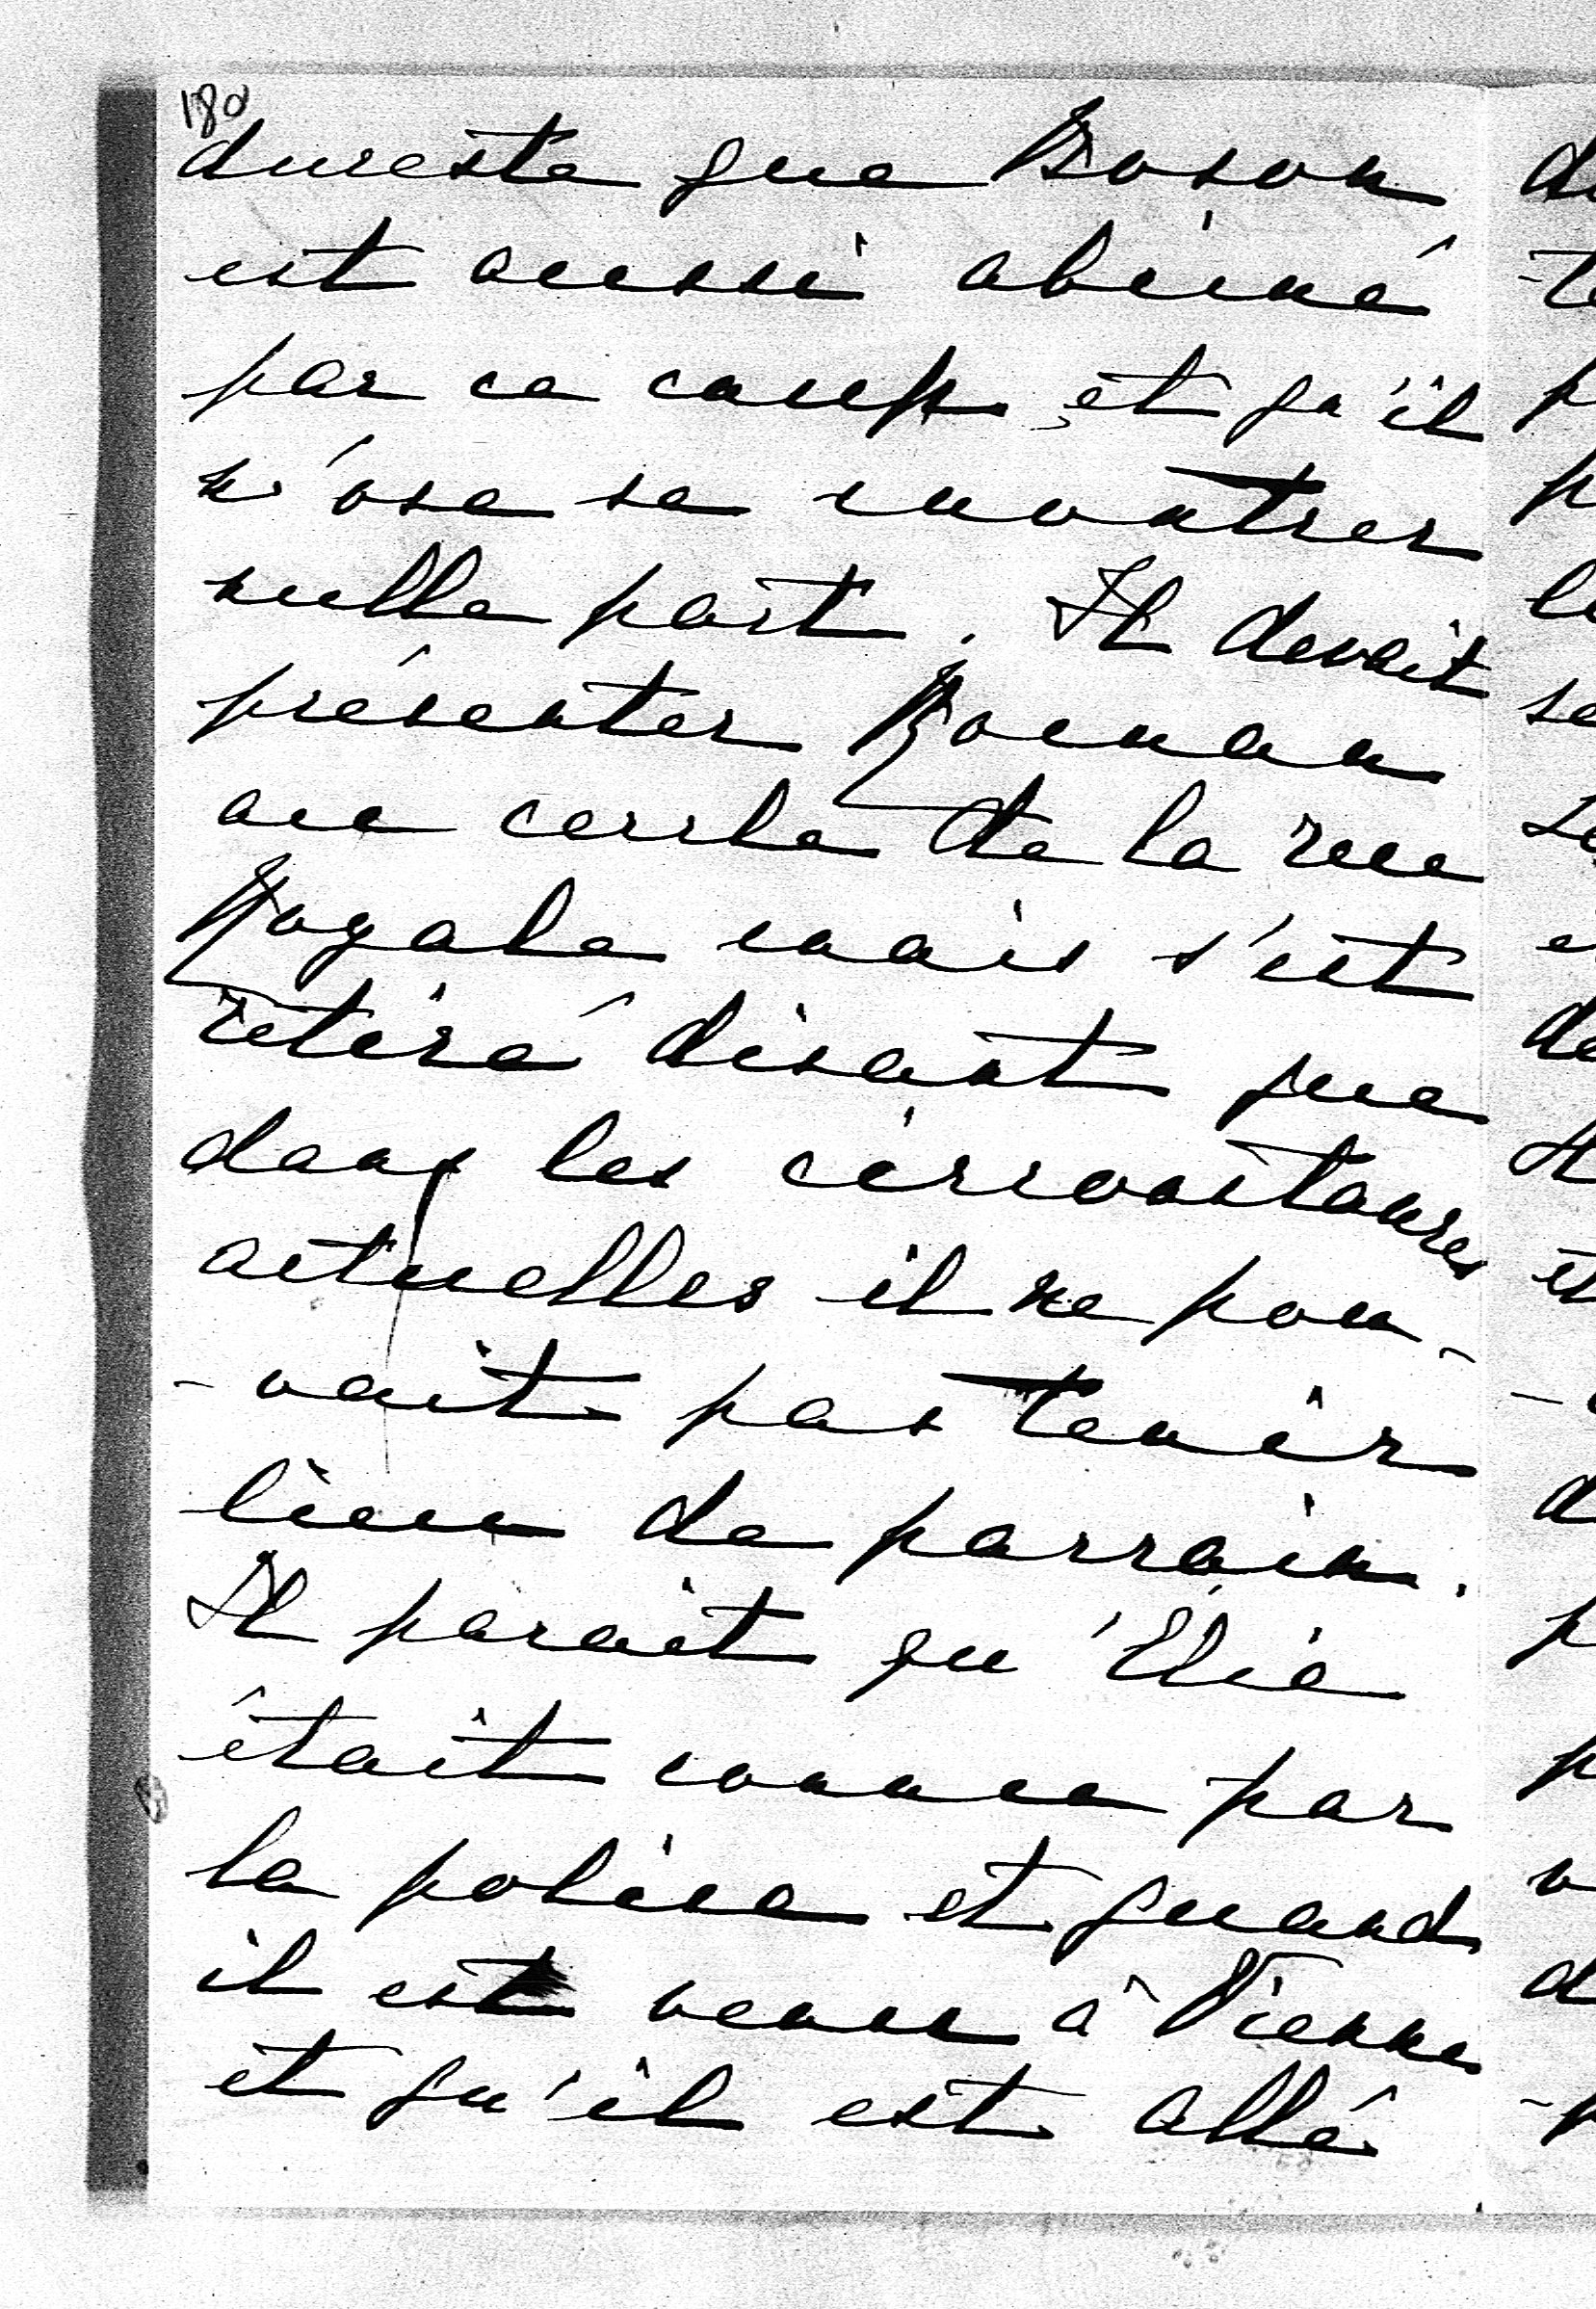 180
dureste que Boson
est aussi abimé
par ce coup et qu'il
n'ose se montrer
nulle part. Il devait
présenter Roman
au cercle de la rue
Royale mais s'est
retiré disant que
dans les circonstances
actuelles il ne pou-
-vait pas tenir
lieu de parrain.
Il parait qu'Elie
était connu par
la police et quand
il est venu à Vienne
et qu'il est allé